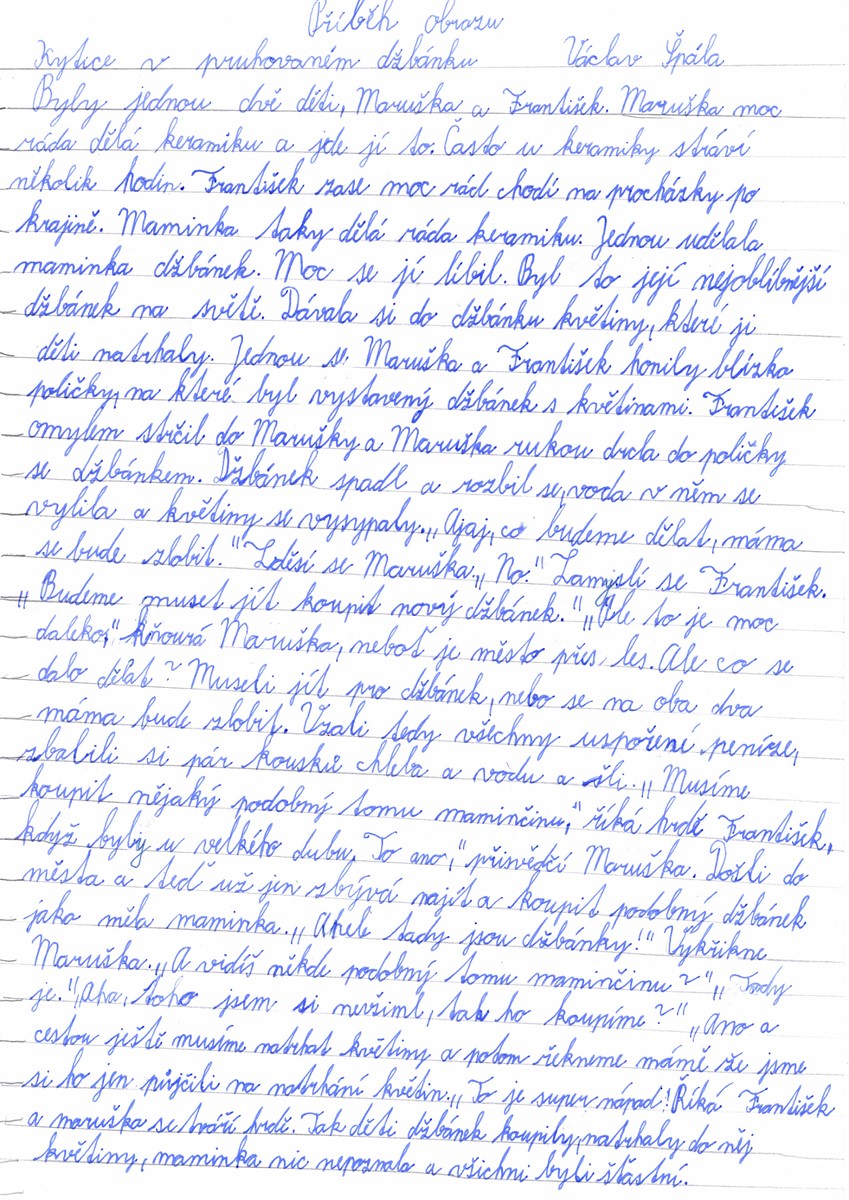 Příběh obrazu
Kytice v pruhovaném džbánku Václav Špála
Byly jednou dvě děti, Maruška a František. Maruška moc
ráda dělá keramiku a jde jí to. Často u keramiky stráví
několik hodin. František zase moc rád chodí na procházky po
krajině. Maminka taky dělá ráda keramiku. Jednou udělala
maminka džbánek. Moc se jí líbil. Byl to její nejoblíbnější
džbánek na světě. Dávala si do džbánku květiny, které ji
děti natrhaly. Jednou se Maruška a František honily blízka
poličky, na které byl vystavený džbánek s květinami. František
omylem strčil do Marušky a Maruška rukou drcla do poličky
se džbánkem. Džbánek spadl a rozbil se, voda v něm se
vylila a květiny se vysypaly. „Ajaj, co budeme dělat, máma
se bude zlobit." Zděsí se Maruška. „No." Zamyslí se František.
„Budeme muset jít koupit nový džbánek." „Ale to je moc
daleko," kňourá Maruška, neboť je město přes les. Ale co se
dalo dělat? Museli jít pro džbánek, nebo se na oba dva
máma bude zlobit. Vzali tedy všechny uspořené peníze,
zbalili si pár kousků chleba a vodu a šli. „Musíme
koupit nějaký podobný tomu maminčinu," říká hrdě František,
když byly u velkého dubu. To ano," přisvědčí Maruška. Došli do
města a teď už jen zbývá najít a koupit podobný džbánek
jako měla maminka. „Ahele tady jsou džbánky!" Vykřikne
Maruška. „A vidíš někde podobný tomu maminčinu?" „Tady
je." „Aha, toho jsem si nevšiml, tak ho koupíme?" „Ano a
cestou ještě musíme natrhat květiny a potom řekneme mámě že jsme
si ho jen půjčili na natrhání květin. „To je super nápad! Říká František
a maruška se tváří hrdě. Tak děti džbánek koupily, natrhaly do něj
květiny, maminka nic nepoznala a všichni byli šťastní.